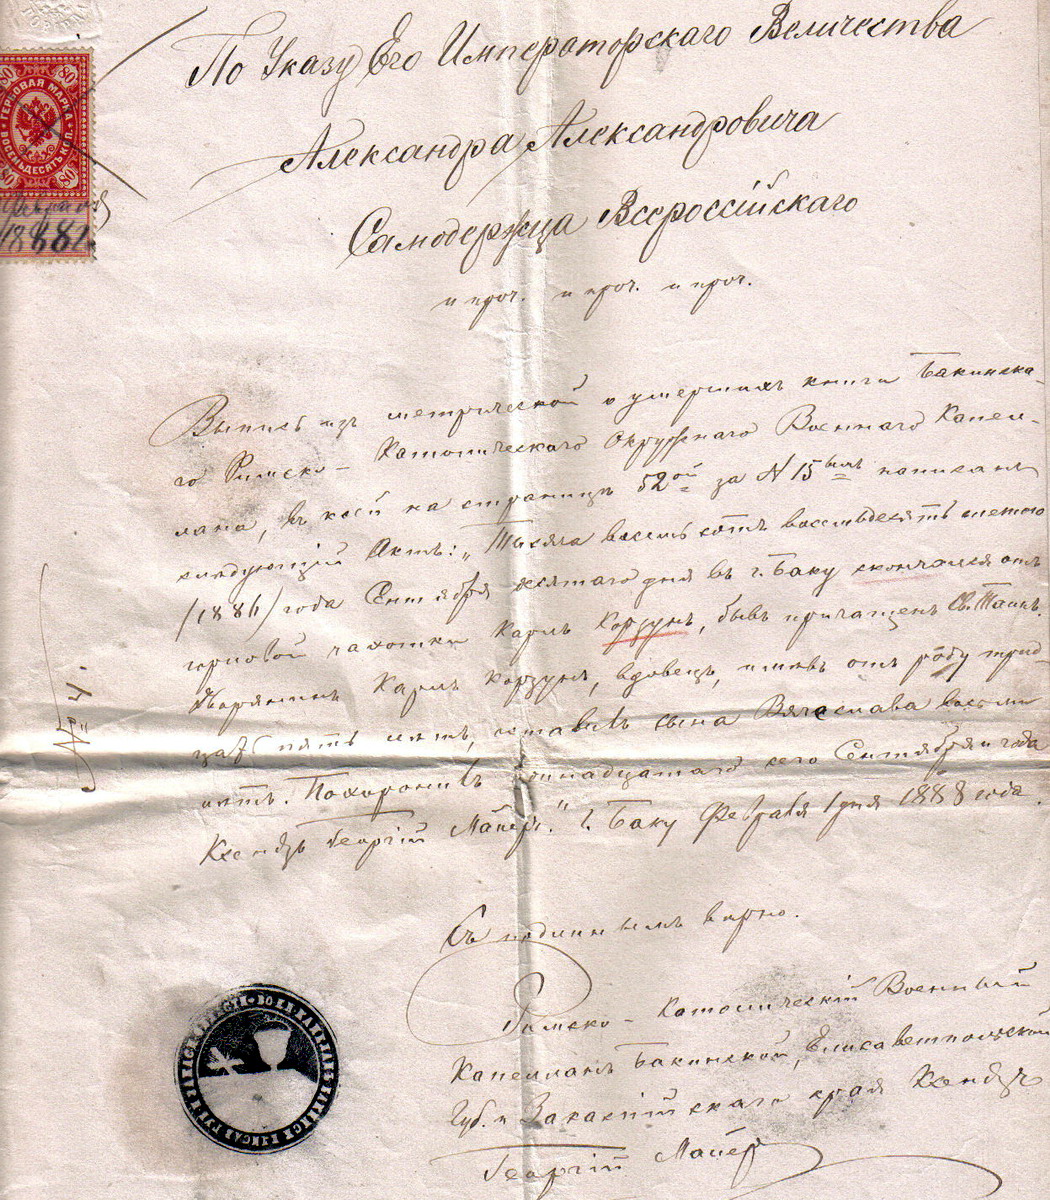 80 80
ГЕРБОВАЯ МАРКА
ВОСЕМЬДЕСЯТЬ КОП.
80 80
1888
По Указу Его Императорскаго Величества
Александра Александровича
Самодержца Всероссійскаго
и проч. и проч. и проч.
Выпись изъ метрической о умершихъ книги Бакинска-
го Римско-Католическаго Окружнаго Военнаго Капел-
лана, въ коей на страницѣ 52ой за N 15ымъ написанъ
слѣдующій Актъ: „Тысяча восемь сотъ восемьдесятъ шестого
/1886/ года Сентября десятаго дня въ г. Баку скончался отъ
горловой чахотки Карлъ Корзунъ, бывъ причащен Св. Таинъ.
Дворянинъ Карлъ Корзунъ, вдовецъ, имѣвъ отъ роду трид-
цать пять лѣтъ, оставивъ сына Вячеслава восьми
лѣтъ. Похоронилъ сего Сентября и года
Ксендзъ Георгій Майеръ." г. Баку Февраля 1 дня 1888 года.
Съ подлиннымъ вѣрно.
Римско-Католическій Военный
Капелланъ Бакинской, Елисаветпольской
Губ. и Закаспійскаго края Ксендзъ
Георгій Майер